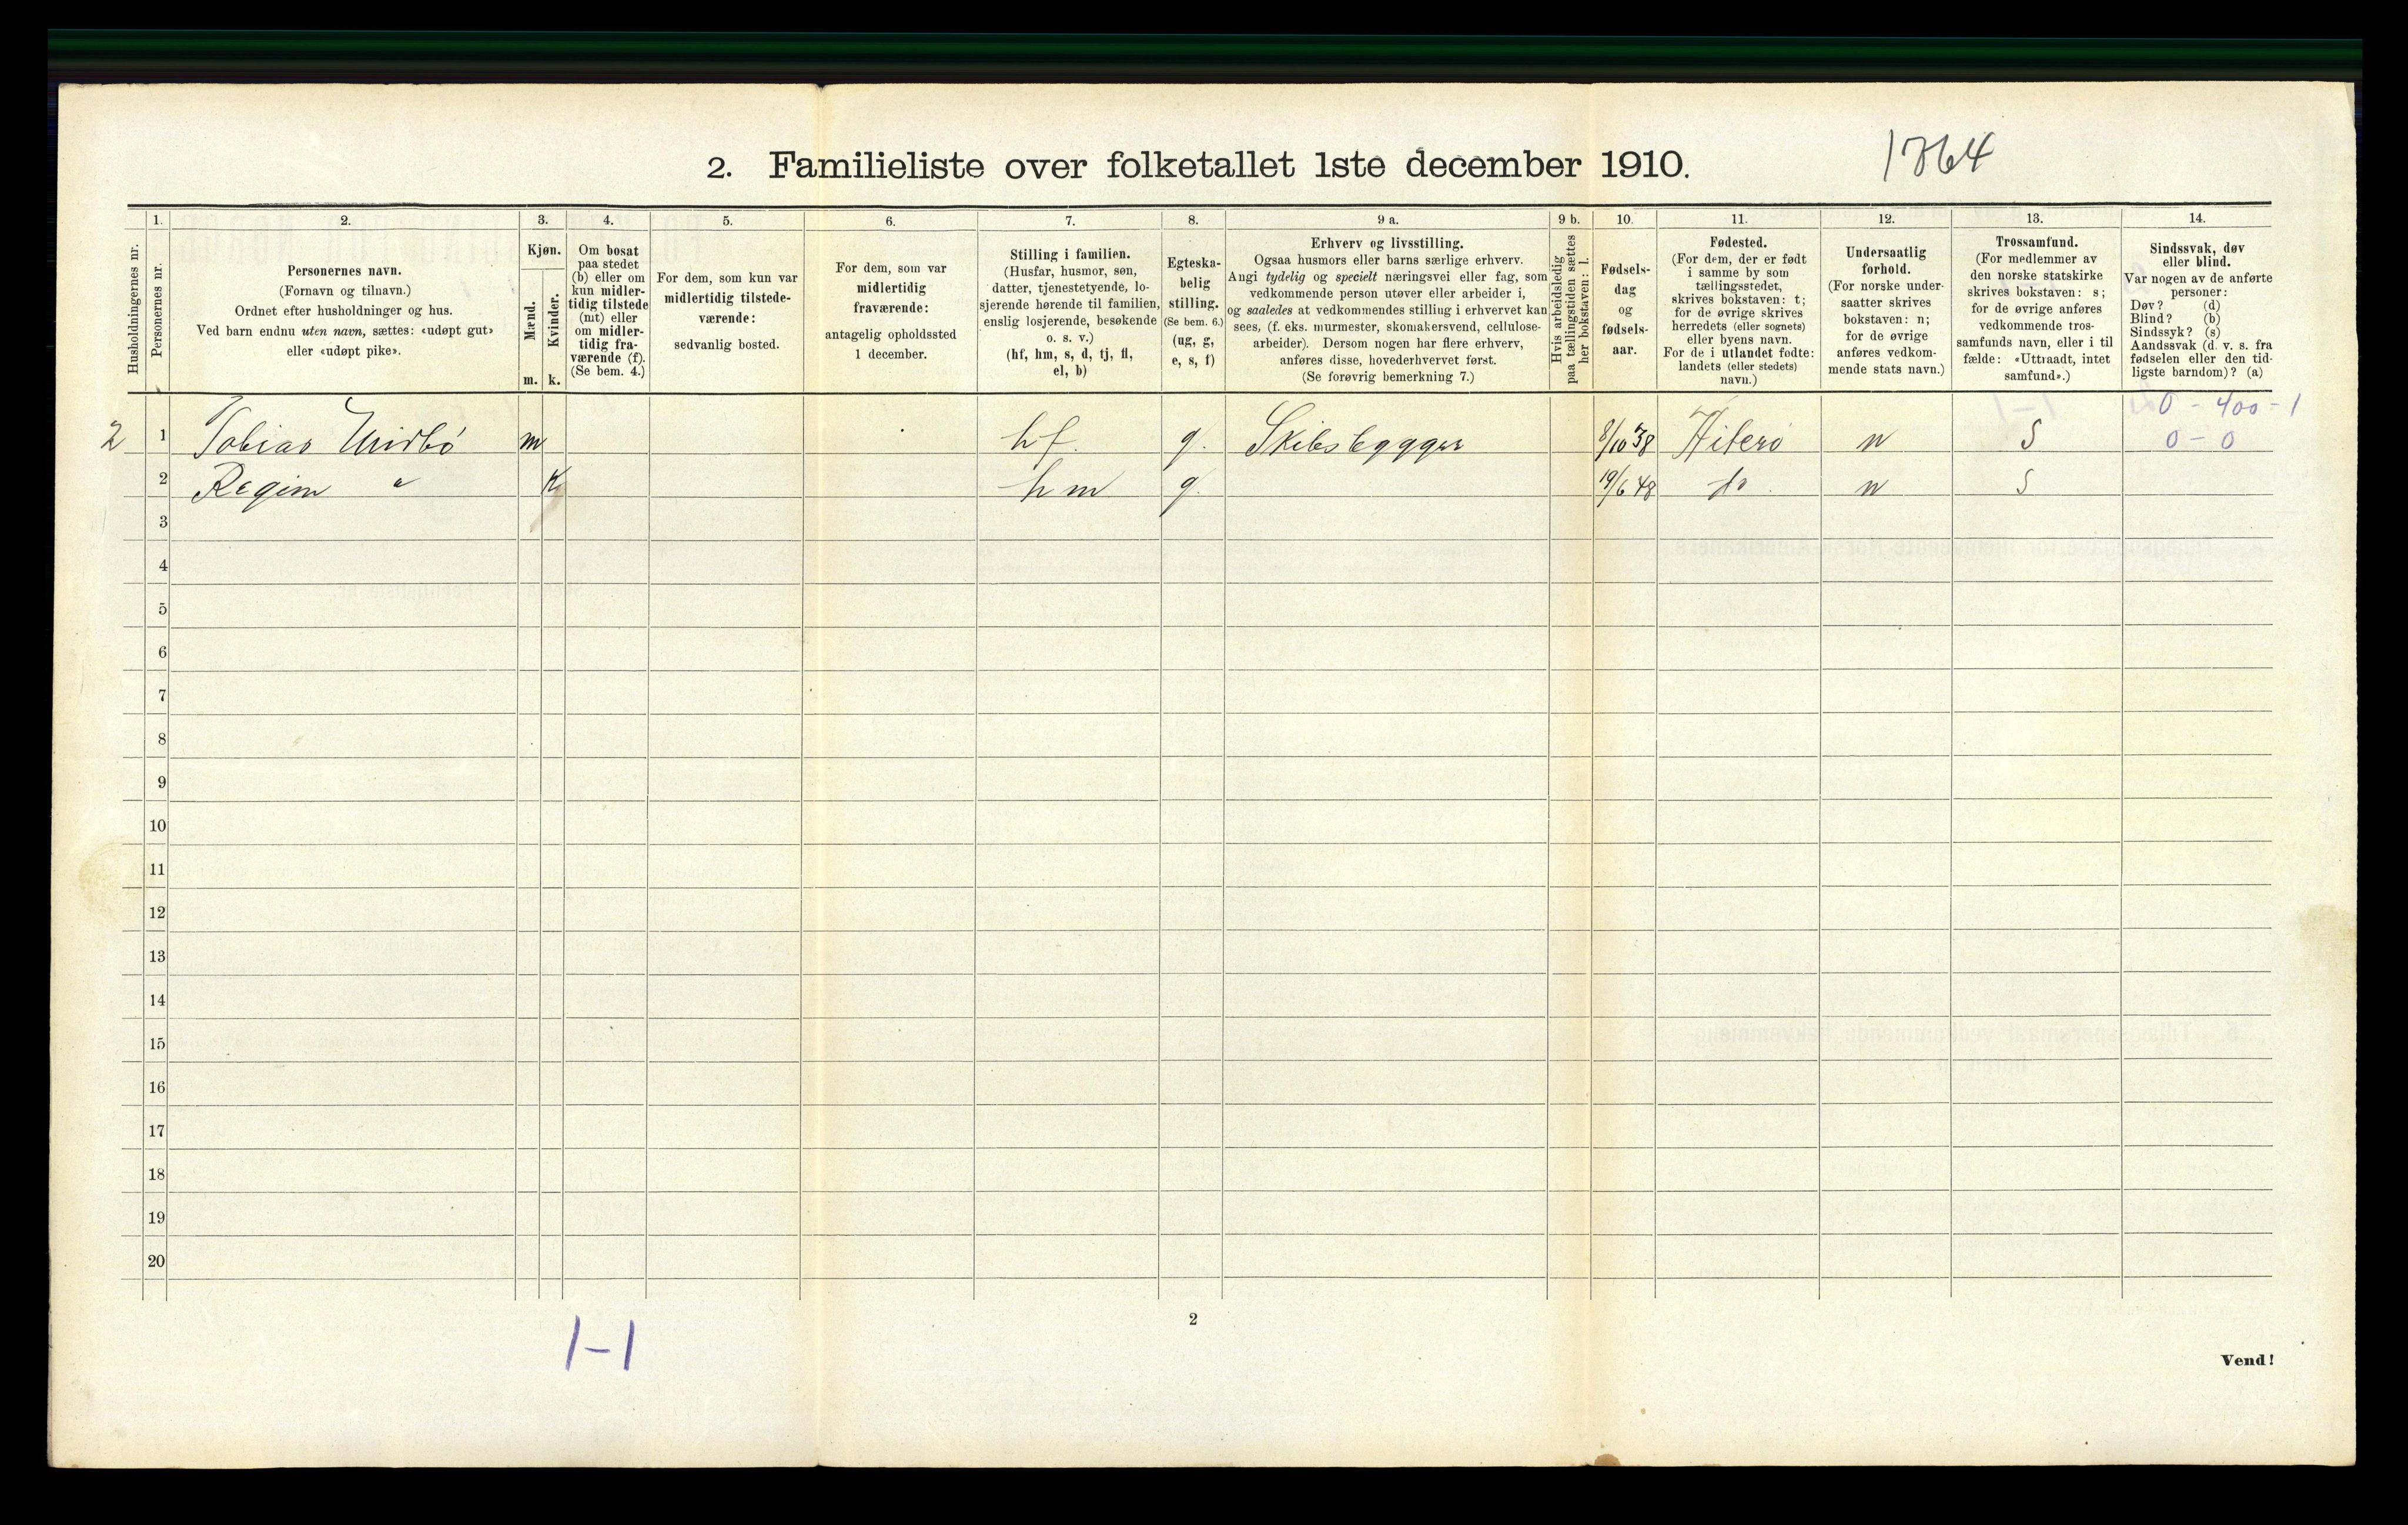 2. Familieliste over folketallet 1ste december 1910.
1864
Husholdningernes nr.
1.
Personernes nr.
2.
Personernes navn.
(Fornavn og tilnavn.)
Ordnet efter husholdninger og hus.
Ved barn endnu uten navn, sættes: «udøpt gut»
eller «udøpt pike».
3.
Kjøn.
Mænd.
Kvinder.
m. k.
4.
Om bosat
paa stedet
(b) eller om
kun midler-
tidig tilstede
(mt) eller
om midler-
tidig fra-
værende (f).
(Se bem. 4.)
5.
For dem, som kun var
midlertidig tilstede-
værende:
sedvanlig bosted.
6.
For dem, som var
midlertidig
fraværende:
antagelig opholdssted
1 december.
7.
Stilling i familien.
(Husfar, husmor, søn,
datter, tjenestetyende, lo-
sjerende hørende til familien,
enslig losjerende, besøkende
o. s. v.)
(hf, hm, s, d, tj, fl,
el, b)
8.
Egteska-
belig
stilling.
(Se bem. 6.)
(ug, g,
e, s, f)
9 a.
Erhverv og livsstilling.
Ogsaa husmors eller barns særlige erhverv.
Angi tydelig og specielt næringsvei eller fag, som
vedkommende person utøver eller arbeider i,
og saaledes at vedkommendes stilling i erhvervet kan
sees, (f. eks. murmester, skomakersvend, cellulose-
arbeider). Dersom nogen har flere erhverv,
anføres disse, hovederhvervet først.
(Se forøvrig bemerkning 7.)
9 b.
Hvis arbeidsledig
paa tællingstiden sættes
her bokstaven: l.
10.
Fødsels-
dag
og
fødsels-
aar.
11.
Fødested.
(For dem, der er født
i samme by som
tællingsstedet,
skrives bokstaven: t;
for de øvrige skrives
herredets (eller sognets)
eller byens navn.
For de i utlandet fødte:
landets (eller stedets)
navn.)
12.
Undersaatlig
forhold.
(For norske under-
saatter skrives
bokstaven: n;
for de øvrige
anføres vedkom-
mende stats navn.)
13.
Trossamfund.
(For medlemmer av
den norske statskirke
skrives bokstaven: s;
for de øvrige anføres
vedkommende tros-
samfunds navn, eller i til
fælde: «Uttraadt, intet
samfund».)
14.
Sindssvak, døv
eller blind.
Var nogen av de anførte
personer:
Døv? (d)
Blind? (b)
Sindssyk? (s)
Aandssvak (d. v. s. fra
fødselen eller den tid-
ligste barndom)? (a)
0 - 400 - 1
2 1 Tobias m hf. g. 8/10 38 Hiterø n S 0 - 0
2 Regim " k hm g 19/6 48 do. n S
3
4
5
6
7
8
9
10
11
12
13
14
15
16
17
18
19
20
1-1
2
Vend!